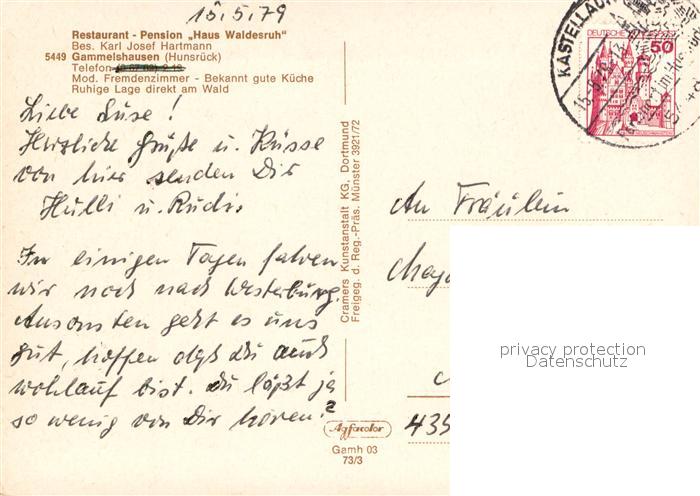 15.5.79
Restaurant - Pension „Haus Waldesruh“
Bes. Karl Josef Hartmann
5449 Gammelshausen (Hunsrück)
Telefon
Mod. Fremdenzimmer - Bekannt gute Küche
Ruhige Lage direkt am Wald
Liebe Suse!
Herzliche Grüße u. Küsse
von hier senden Dir
Hulli u. Rudi.
In einigen Tagen fahren
wir noch nach Westerburg.
Ansonsten geht es uns
gut, hoffen daß Du auch
wohlauf bist. Du läßt ja
so wenig von Dir hören?
Cramers Kunstanstalt KG, Dortmund
Freigeg. d. Reg.-Präs. Münster 3921/72
Agfacolor
Gamh 03
73/3
KASTELLAUN
DEUTSCHE
50
An Fräulein
435
privacy protection
Datenschutz